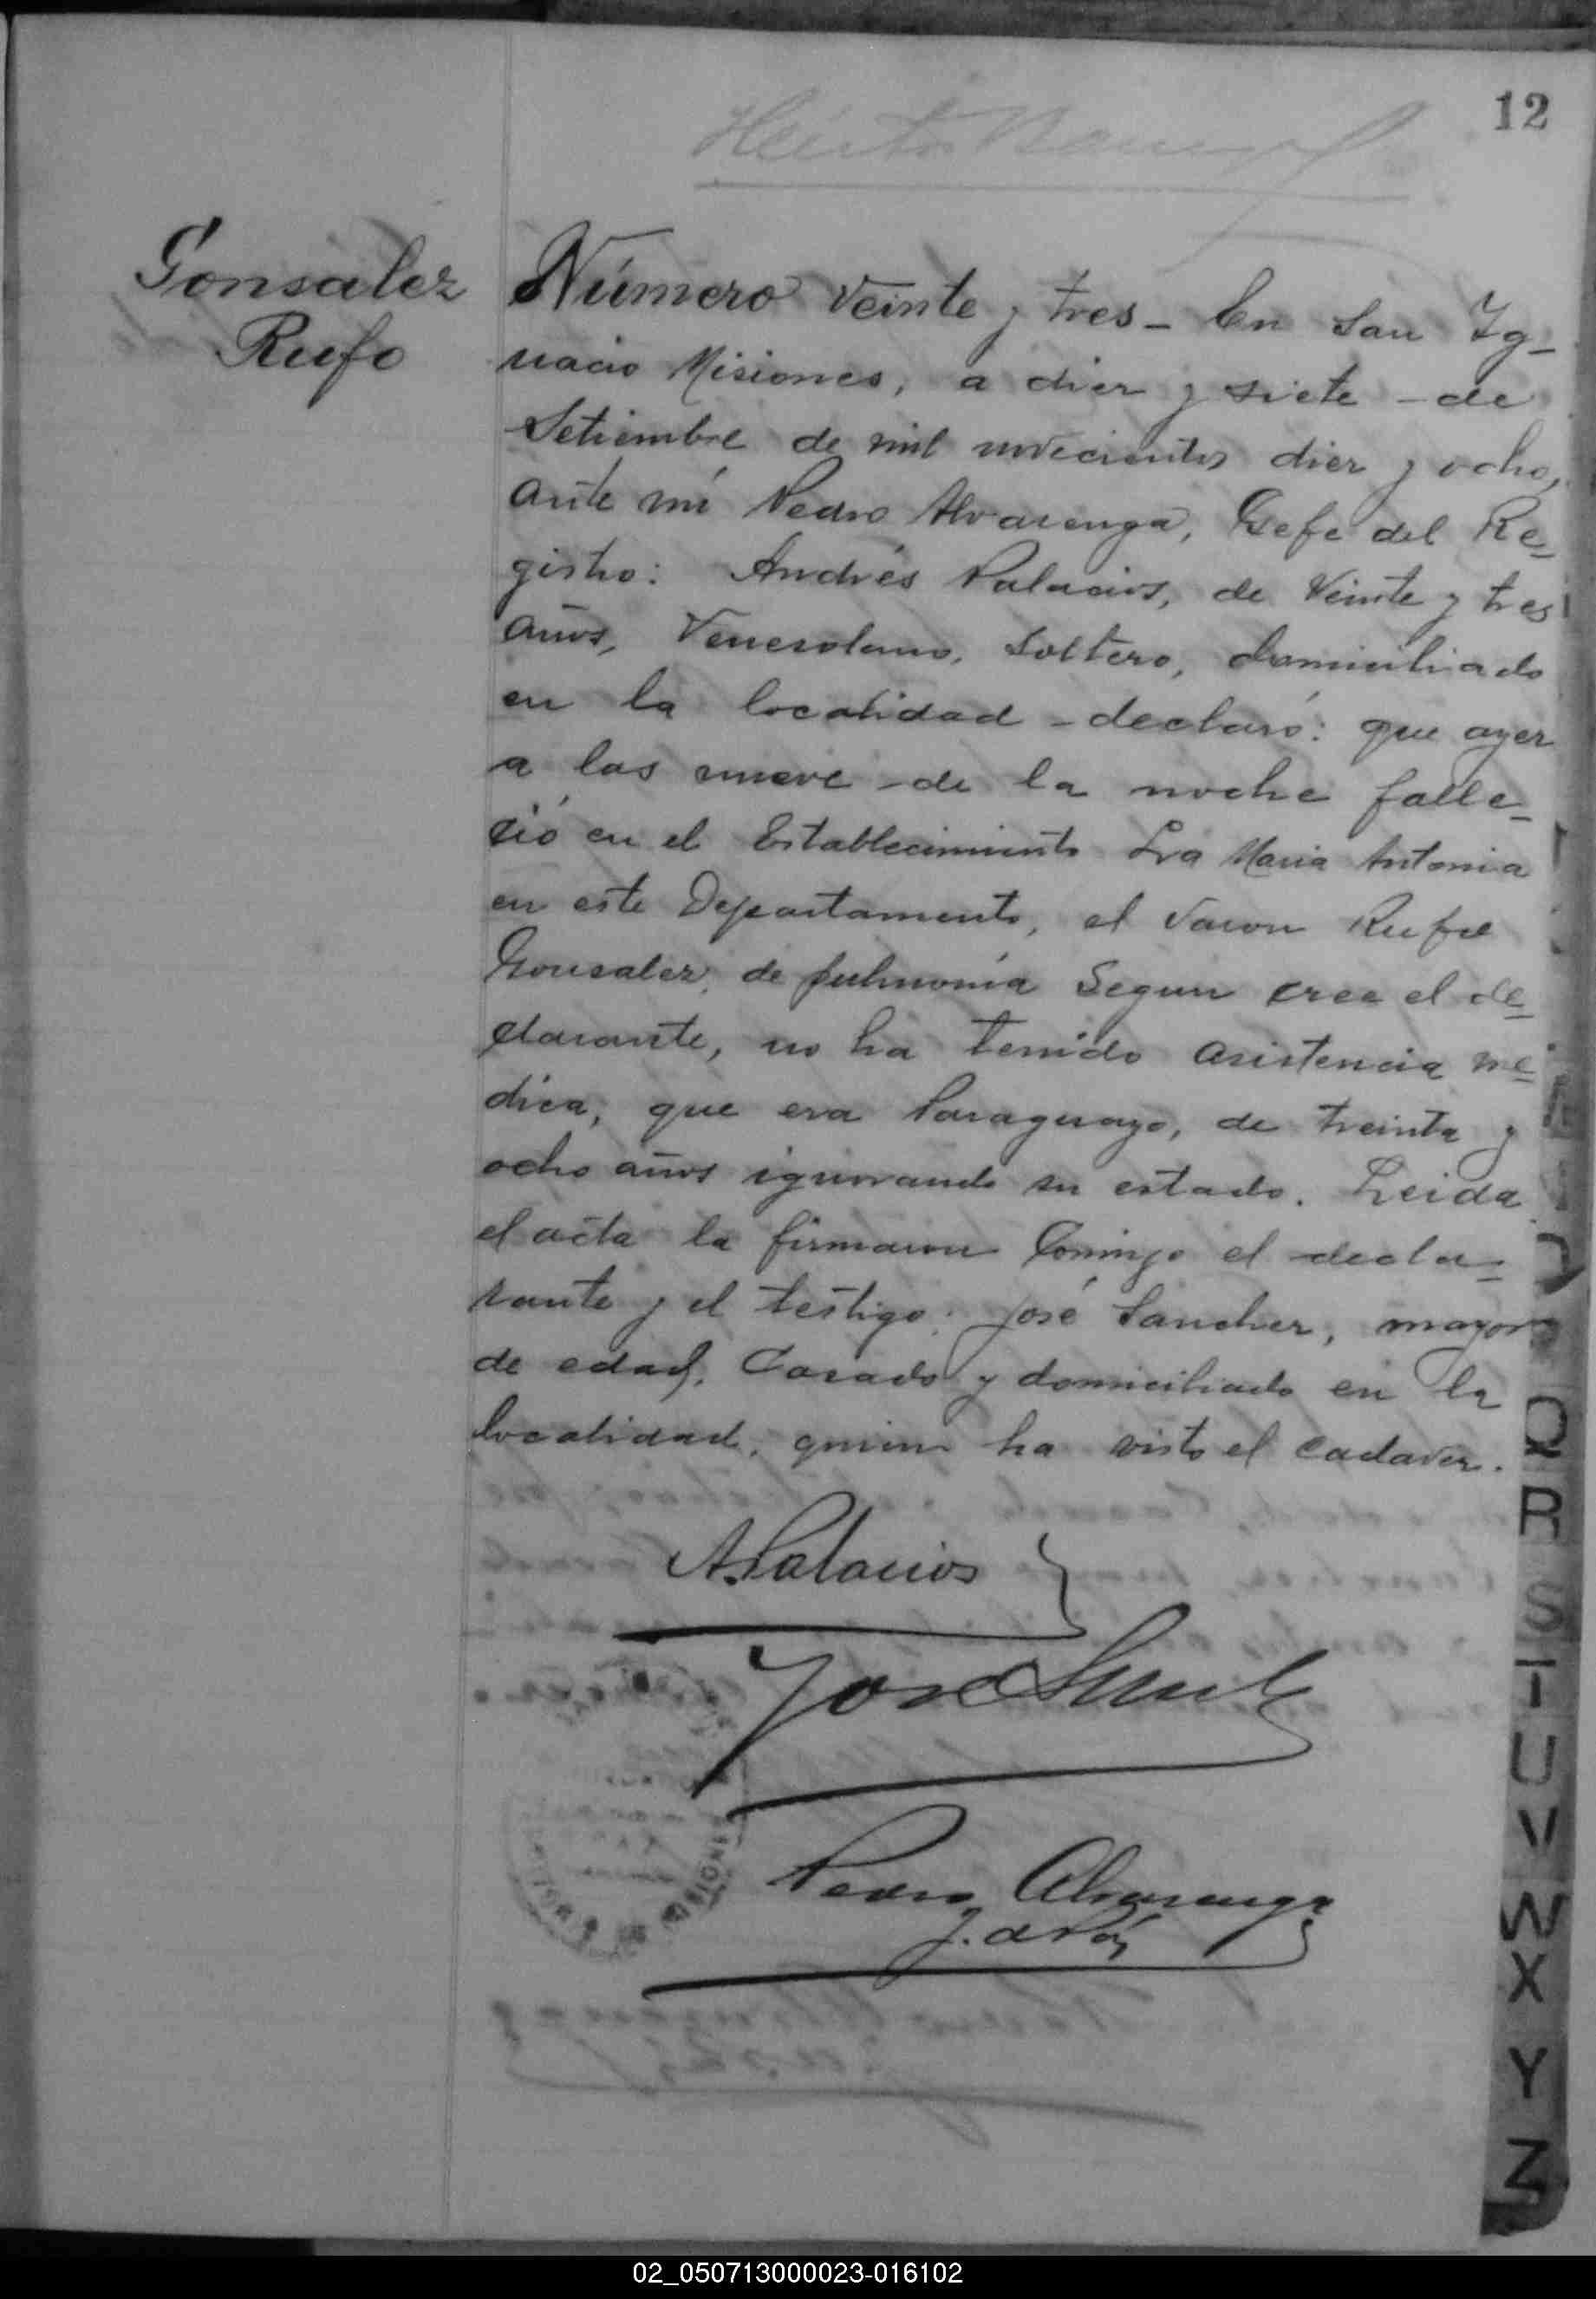 12
Gonsalez
Rufo
Número veinte y tres - En San Ig-
nacio Misiones, a diez y siete - de
Setiembre de mil novecientos diez y ocho,
ante mí Pedro Alvarenga, Gefe del Re-
gistro: Andrés Palacios, de Veinte y tres
años, Venesolano, Soltero, domiciliado
en la localidad - declaró: que ayer
a las nueve - de la noche falle-
ció en el Establecimiento La Maria Antonia
en este Departamento, el varon Rufo
Gonsalez, de pulmonía Segun cree el de-
clarante, no ha tenido asistencia me-
dica, que era Paraguayo, de treinta y
ocho años ignorando su estado. Leida
el acta la firmaron Conmigo el decla-
rante y el testigo: José Sanchez, mayor
de edad, Casado y domiciliado en la
localidad, quien ha visto el cadaver.
A. Palacios
José
Pedro Alvarenga
J. de Paz
Q
R
S
T
U
V
W
X
Y
Z
02_050713000023-016102